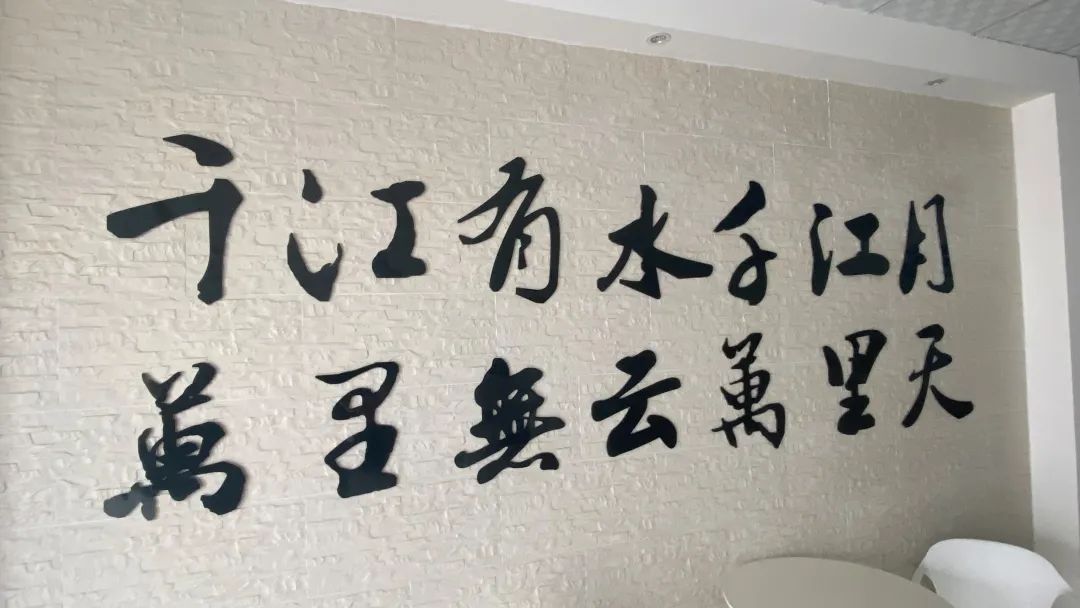 千江有水千江月
萬里無云萬里天